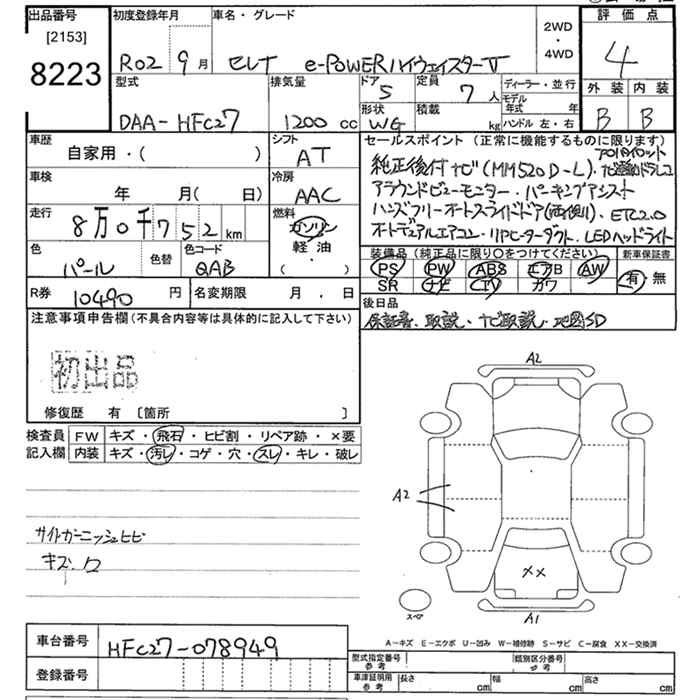 出品番号
[2153]
8223
初度登録年月
R02 9月
車名・グレード
セレナ e-POWERハイウェイスターV
2WD
・
4WD
評価点
4
型式
DAA-HFC27
排気量
1200 cc
ドア
5
定員
7人
形状
WG
積載
kg
ディーラー・並行
モデル年式 年
ハンドル 左・右
外装 内装
B B
車歴
自家用・( )
シフト
AT
車検
年 月( 日)
冷房
AAC
走行
8万0千752km
燃料
ガソリン
軽油
( )
色
パール
色替
色コード
QAB
R券
10490 円
名変期限 月 日
セールスポイント(正常に機能するものに限ります)
プロパイロット
純正後付ナビ(MM520D-L)、ナビ連動ドラレコ
アラウンドビューモニター・パーキングアシスト
ハンズフリーオートスライドドア(両側)、ETC2.0
オートデュアルエアコン・リアヒーターダクト・LEDヘッドライト
装備品(純正品に限り○をつけてください)
PS PW ABS エアB AW
SR ナビ TV カワ
新車保証書
有・無
後日品
保証書、取説・ナビ取説・地図SD
注意事項申告欄(不具合内容等は具体的に記入して下さい)
初出品
修復歴 有 [箇所 ]
検査員
記入欄
FW キズ・飛石・ヒビ割・リペア跡・×要
内装 キズ・汚レ・コゲ・穴・スレ・キレ・破レ
サイドガーニッシュヒビ
キズ、ワ
A2
A2
××
スペア
A1
A-キズ E-エクボ U-凹み W-補修跡 S-サビ C-腐食 XX-交換済
車台番号
HFC27-078949
登録番号
型式指定番号
参考
類別区分番号
参考
車庫証明用
参考
長さ cm 幅 cm 高さ cm